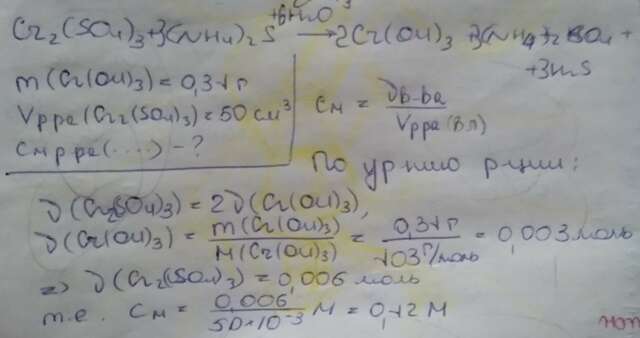 +6H2O
Cr2(SO4)3+3(NH4)2S → 2Cr(OH)3 +3(NH4)2SO4 +
+3H2S
m(Cr(OH)3) = 0,31 г
Vр-ра(Cr2(SO4)3) = 50 см³
Cм р-ра(....) - ?
Cм = νв-ва / Vр-ра(в л)
По ур-нию р-ции:
ν(Cr2(SO4)3) = 2ν(Cr(OH)3),
ν(Cr(OH)3) = m(Cr(OH)3) / M(Cr(OH)3) = 0,31г / 103г/моль = 0,003моль
=> ν(Cr2(SO4)3) = 0,006 моль
т.е. Cм = 0,006 / 50*10⁻³ М = 0,12 М